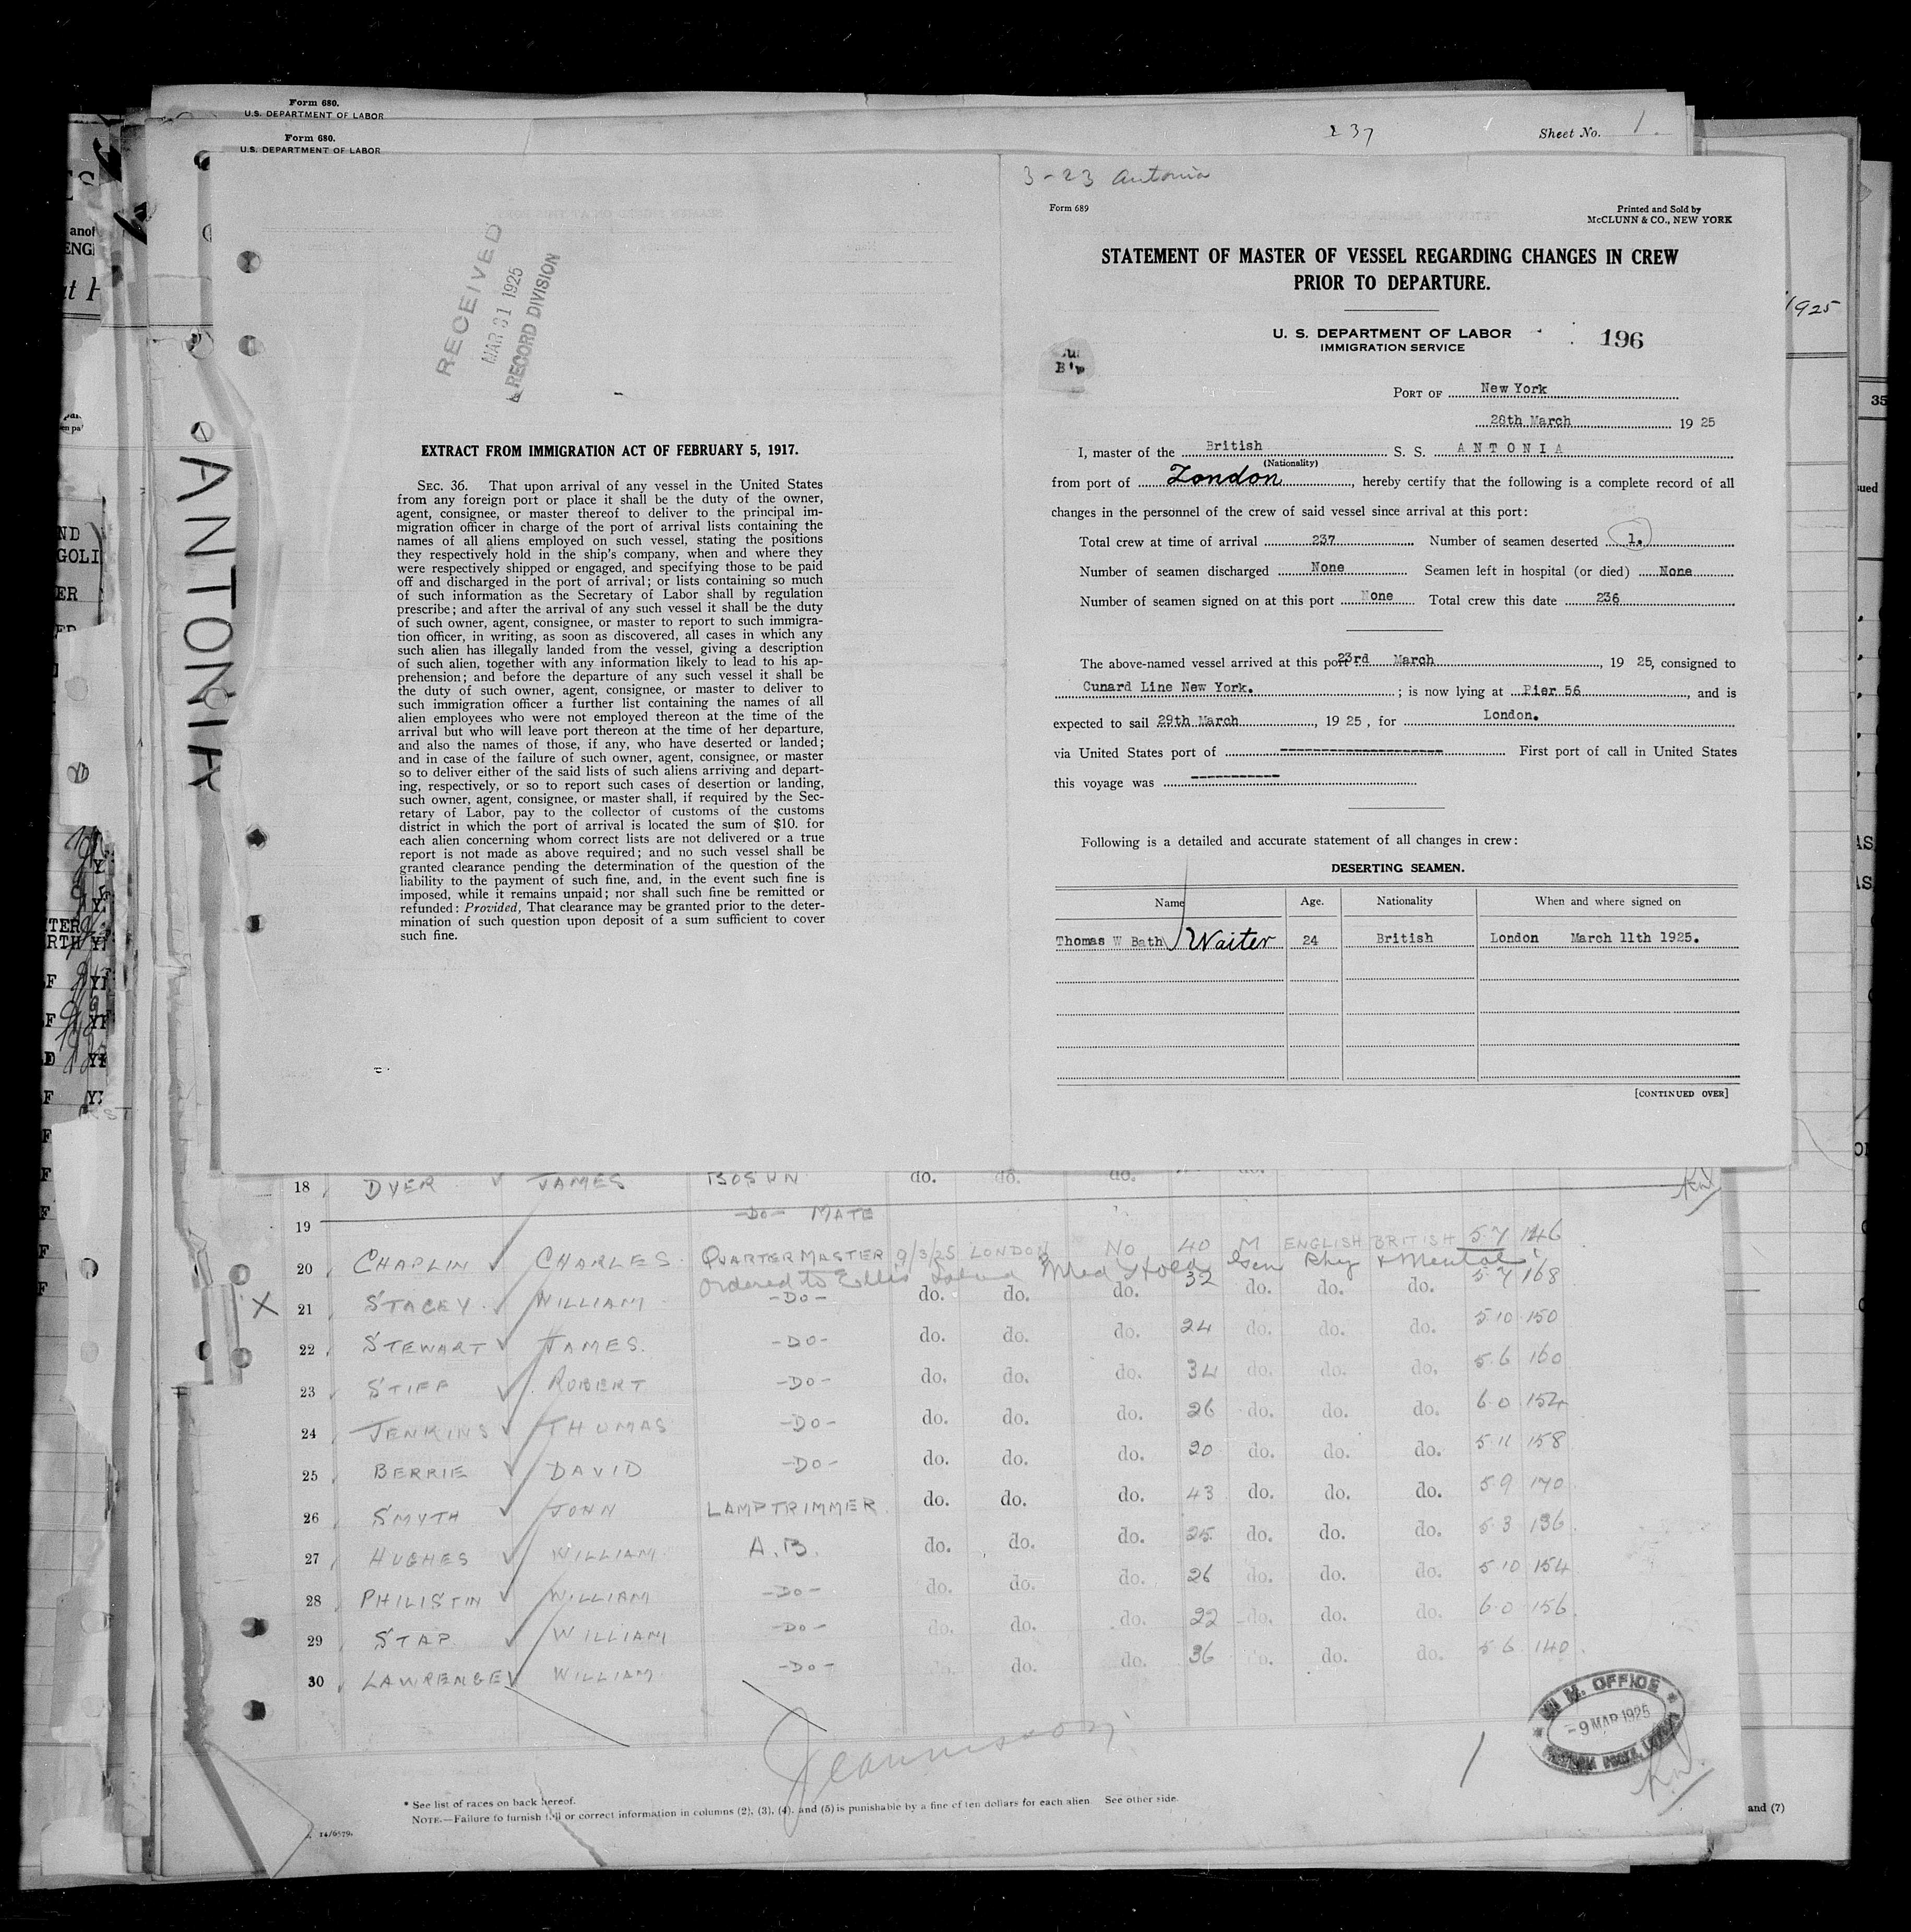 Form 680.
U.S. DEPARTMENT OF LABOR
Form 680.
U.S. DEPARTMENT OF LABOR
237
Sheet No. 1.
ANTONIA
RECEIVED
MAR 31 1925
RECORD DIVISION
EXTRACT FROM IMMIGRATION ACT OF FEBRUARY 5, 1917.
SEC. 36. That upon arrival of any vessel in the United States
from any foreign port or place it shall be the duty of the owner,
agent, consignee, or master thereof to deliver to the principal im-
migration officer in charge of the port of arrival lists containing the
names of all aliens employed on such vessel, stating the positions
they respectively hold in the ship's company, when and where they
were respectively shipped or engaged, and specifying those to be paid
off and discharged in the port of arrival; or lists containing so much
of such information as the Secretary of Labor shall by regulation
prescribe; and after the arrival of any such vessel it shall be the duty
of such owner, agent, consignee, or master to report to such immigra-
tion officer, in writing, as soon as discovered, all cases in which any
such alien has illegally landed from the vessel, giving a description
of such alien, together with any information likely to lead to his ap-
prehension; and before the departure of any such vessel it shall be
the duty of such owner, agent, consignee, or master to deliver to
such immigration officer a further list containing the names of all
alien employees who were not employed thereon at the time of the
arrival but who will leave port thereon at the time of her departure,
and also the names of those, if any, who have deserted or landed;
and in case of the failure of such owner, agent, consignee, or master
so to deliver either of the said lists of such aliens arriving and depart-
ing, respectively, or so to report such cases of desertion or landing,
such owner, agent, consignee, or master shall, if required by the Sec-
retary of Labor, pay to the collector of customs of the customs
district in which the port of arrival is located the sum of $10. for
each alien concerning whom correct lists are not delivered or a true
report is not made as above required; and no such vessel shall be
granted clearance pending the determination of the question of the
liability to the payment of such fine, and, in the event such fine is
imposed, while it remains unpaid; nor shall such fine be remitted or
refunded: Provided, That clearance may be granted prior to the deter-
mination of such question upon deposit of a sum sufficient to cover
such fine.
3-23 Antonia
Form 689
Printed and Sold by
McCLUNN & CO., NEW YORK
STATEMENT OF MASTER OF VESSEL REGARDING CHANGES IN CREW
PRIOR TO DEPARTURE.
U. S. DEPARTMENT OF LABOR
IMMIGRATION SERVICE
196
PORT OF New York
28th March 1925
I, master of the British S. S. ANTONIA
(Nationality)
from port of London, hereby certify that the following is a complete record of all
changes in the personnel of the crew of said vessel since arrival at this port:
Total crew at time of arrival 237 Number of seamen deserted 1.
Number of seamen discharged None Seamen left in hospital (or died) None
Number of seamen signed on at this port None Total crew this date 236
The above-named vessel arrived at this port 23rd March, 1925, consigned to
Cunard Line New York. ; is now lying at Pier 56, and is
expected to sail 29th March, 1925, for London.
via United States port of -------------------- First port of call in United States
this voyage was -----------
Following is a detailed and accurate statement of all changes in crew:
DESERTING SEAMEN.
Name Age. Nationality When and where signed on
Thomas W Bath Waiter 24 British London March 11th 1925.
[CONTINUED OVER]
1925
18 DYER JAMES BOSUN do. do. do.
19 -DO- MATE
20 CHAPLIN CHARLES QUARTERMASTER 9/3/25 LONDON NO 40 M ENGLISH BRITISH 5.7 146
Ordered to Ellis Island Med Hold Gen Phy & Mental
21 STACEY WILLIAM -DO- do. do. do. 32 do. do. do. 5.7 168
22 STEWART JAMES. -DO- do. do. do. 24 do. do. do. 5.10 150
23 STIFF ROBERT -DO- do. do. do. 34 do. do. do. 5.6 160
24 JENKINS THOMAS -DO- do. do. do. 26 do. do. do. 6.0 154
25 BERRIE DAVID -DO- do. do. do. 20 do. do. do. 5.11 158
26 SMYTH JOHN LAMPTRIMMER do. do. do. 43 do. do. do. 5.9 170
27 HUGHES WILLIAM A.B. do. do. do. 25 do. do. do. 5.3 136
28 PHILISTIN WILLIAM -DO- do. do. do. 26 do. do. do. 5.10 154
29 STAP WILLIAM -DO- do. do. do. 22 do. do. do. 6.0 156
30 LAWRENCE WILLIAM -DO- do. do. do. 36 do. do. do. 5.6 140
M. OFFICE
-9 MAR 1925
* See list of races on back hereof.
NOTE.—Failure to furnish full or correct information in columns (2), (3), (4), and (5) is punishable by a fine of ten dollars for each alien. See other side.
and (7)